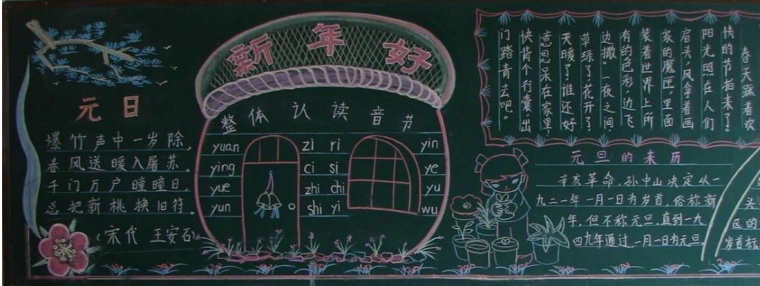 元日
爆竹声中一岁除,
春风送暖入屠苏.
千门万户曈曈日,
总把新桃换旧符.
(宋代 王安石
新年好
整体认读音节
yuan zi ri yin
ying ci si ye
yue zhi chi yu
yun shi yi wu
春天踩着欢
快的节拍来了!
阳光照在人们
肩头,风拿着画
家的魔匣,里面
装着世界上所
有的色彩,边飞
边撒,一夜之间,
草绿了,花开了,
天暖了,谁还好
意思呆在家里,
快背个行囊,出
门踏青去吧。
元旦的来历
辛亥革命,孙中山决定从一
九二一年一月一日为岁首,俗称新
年,但不称元旦,直到一九
四九年通过一月一日为元旦
头
区的